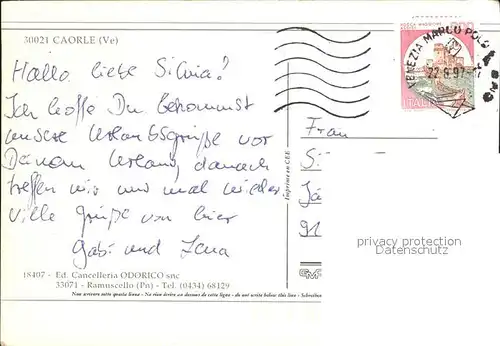 30021 CAORLE (Ve)
VENEZIA MARCO POLO
ITALIA
Hallo liebe Silvia!
Ich hoffe Du bekommst
unsere Urlaubsgrüße vor
Deinem Urlaub, danach
treffen wir uns mal wieder
Viele Grüße von hier
Gabi und Lena
Frau
Si
Jä
91
Imprimé en CEE
privacy protection
Dastamule.com
18407 - Ed. Cancelleria ODORICO snc
33071 - Ramuscello (Pn) - Tel. (0434) 68129
Non scrivere sotto questa linea - Ne rien écrire au dessous de cette ligne - do not write below this line - Schreiben